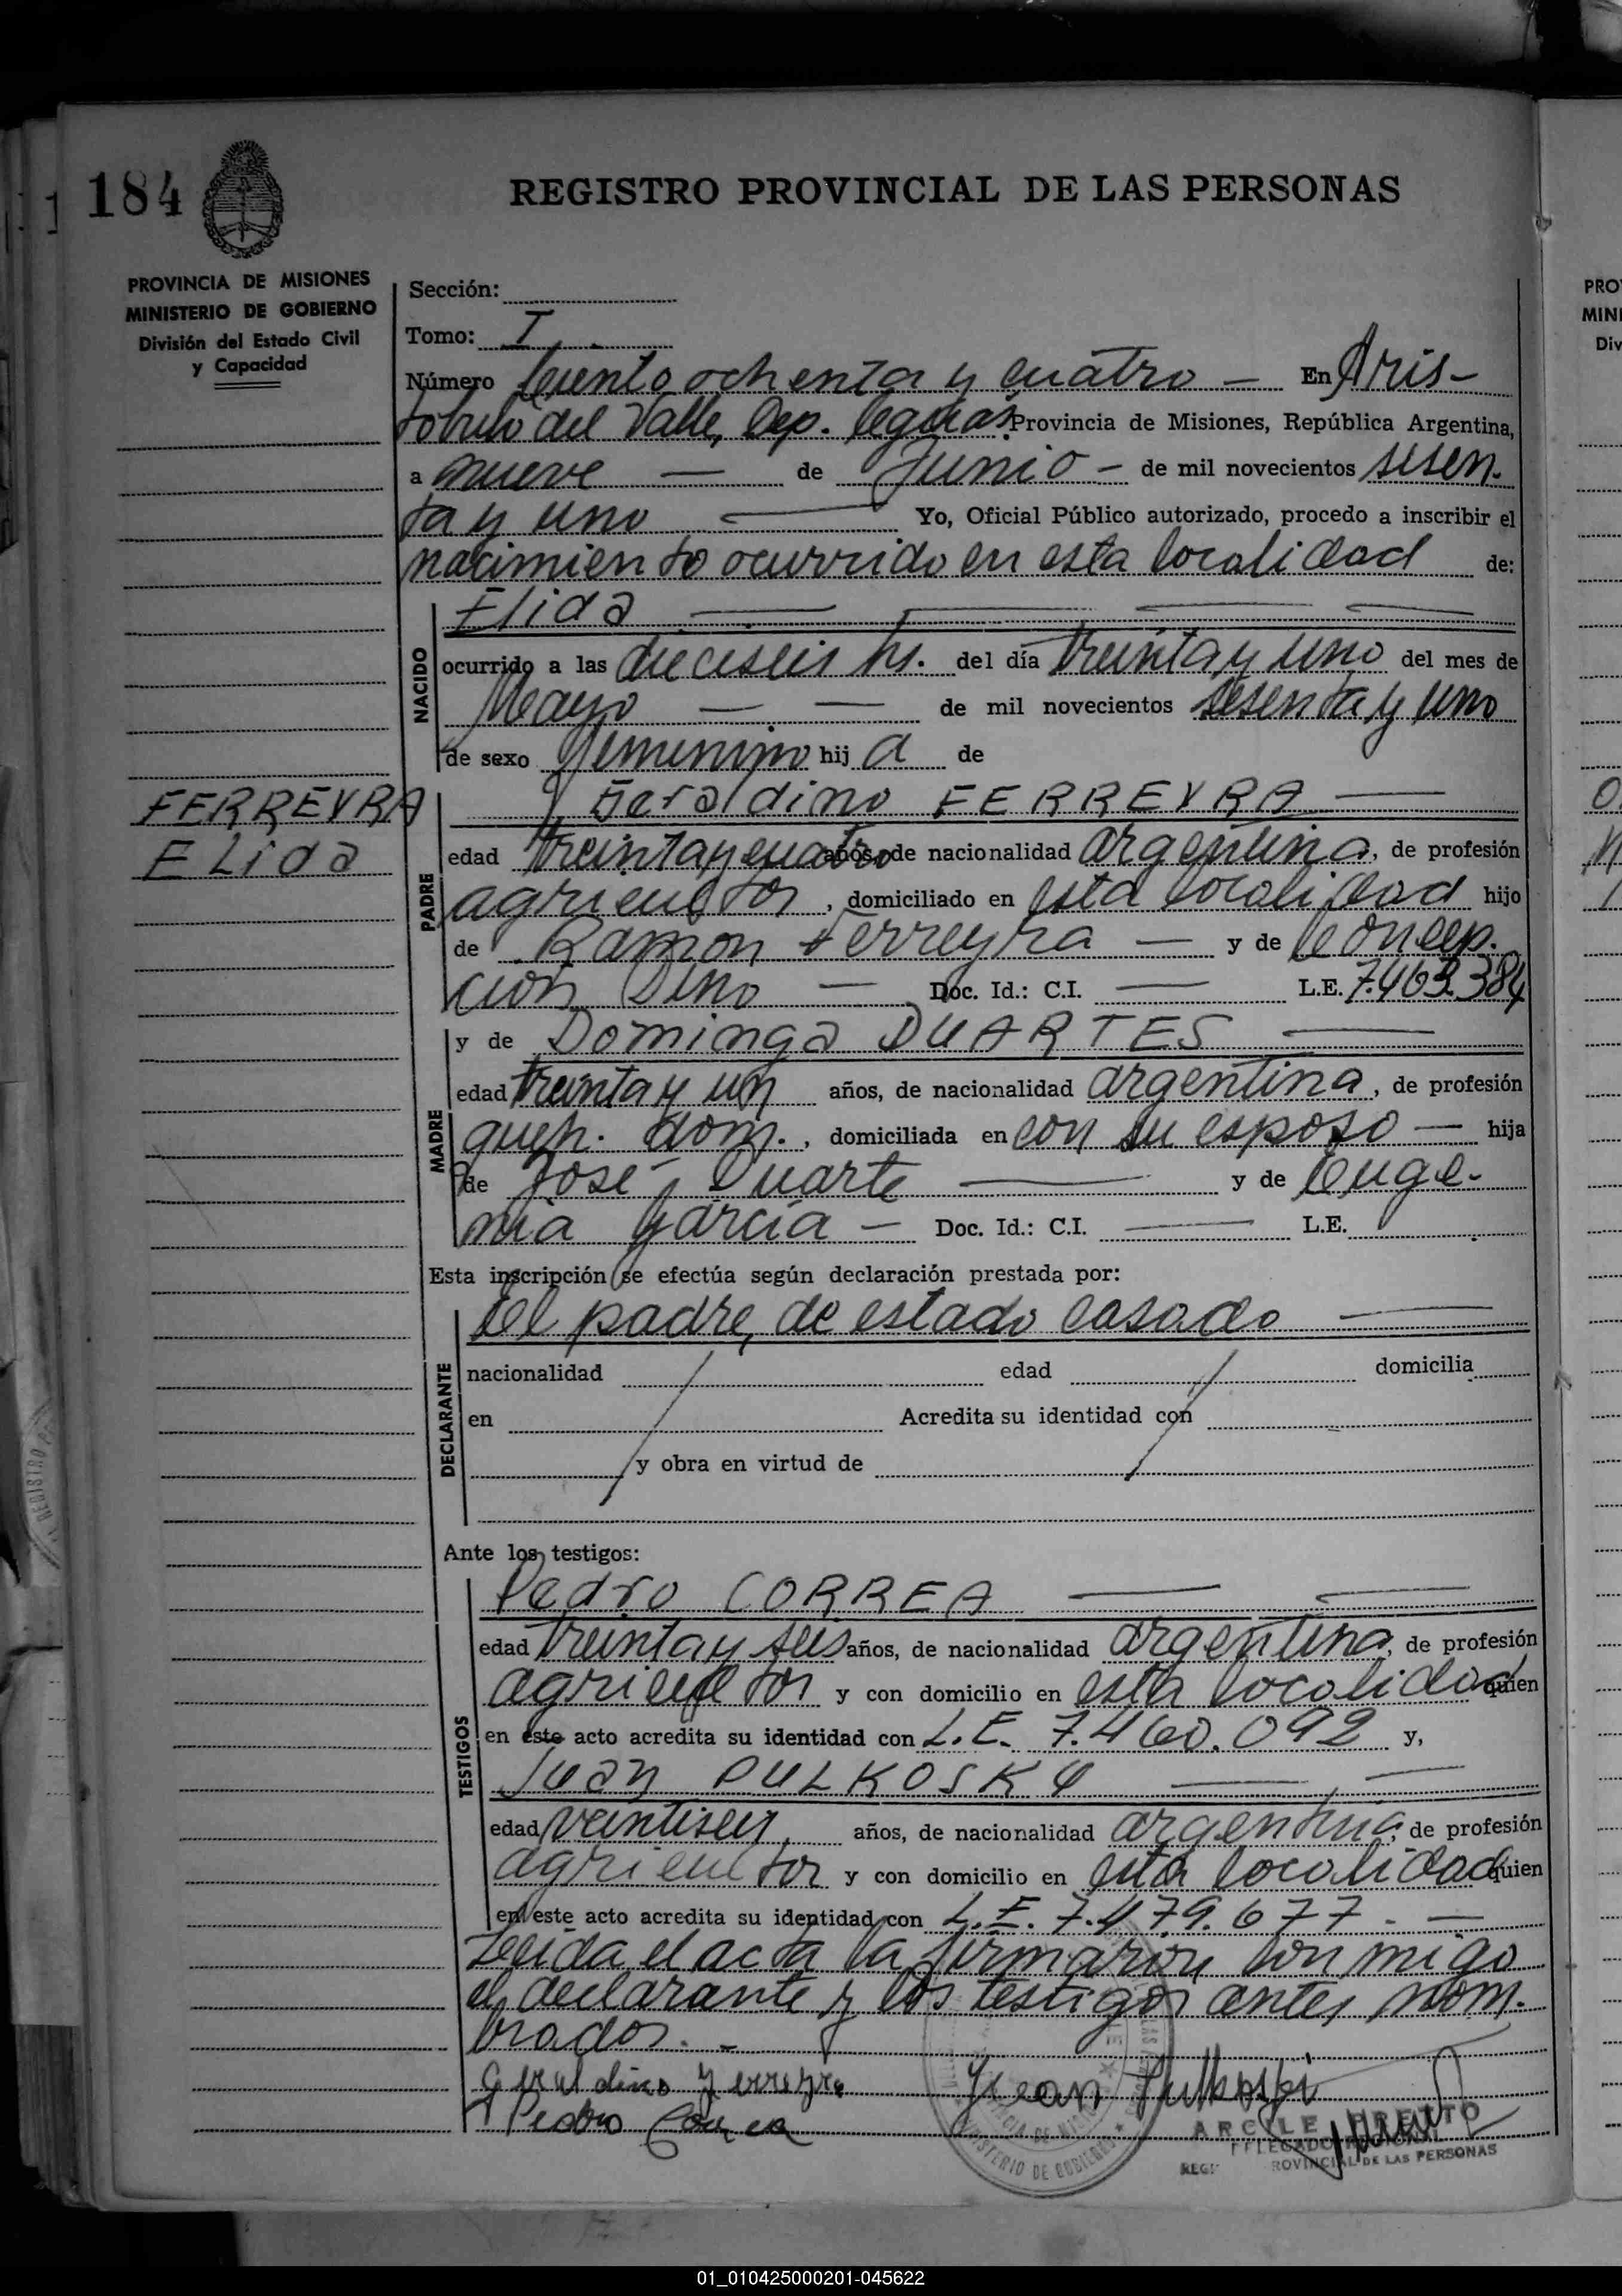 184
REGISTRO PROVINCIAL DE LAS PERSONAS
PROVINCIA DE MISIONES
MINISTERIO DE GOBIERNO
División del Estado Civil
y Capacidad
FERREYRA
Elida
Sección:
Tomo: I
Número Ciento ochenta y cuatro — En Aris-
tobulo del Valle, Dep. Provincia de Misiones, República Argentina,
a nueve — de Junio - de mil novecientos sesen-
ta y uno — Yo, Oficial Público autorizado, procedo a inscribir el
nacimiento ocurrido en esta localidad de:
NACIDO
Elida
ocurrido a las dieciseis hs. del día treinta y uno del mes de
Mayo — — de mil novecientos sesenta y uno
de sexo femenino hij a de
PADRE
Geraldino FERREYRA —
edad treinta y cuatro años, de nacionalidad argentina, de profesión
agricultor, domiciliado en esta localidad hijo
de Ramon Ferreyra — y de Concep-
ción Dino — Doc. Id.: C.I. — L.E. 7.463.384
MADRE
y de Dominga DUARTES —
edad treinta y un años, de nacionalidad argentina, de profesión
queh. dom., domiciliada en con su esposo — hija
de José Duarte — y de Euge-
nia García — Doc. Id.: C.I. — L.E.
Esta inscripción se efectúa según declaración prestada por:
DECLARANTE
El padre, de estado casado —
nacionalidad edad domicilia
en Acredita su identidad con
y obra en virtud de
Ante los testigos:
TESTIGOS
Pedro CORREA —
edad treinta y seis años, de nacionalidad argentina, de profesión
agricultor y con domicilio en esta localidad quien
en este acto acredita su identidad con L.E. 7.460.092 y,
Juan PULKOSKY —
edad veintiseis, años, de nacionalidad argentina, de profesión
agricultor y con domicilio en esta localidad quien
en este acto acredita su identidad con L.E. 7.479.677. —
Leída el acta la firmaron conmigo
el declarante y los testigos antes nom-
brados. —
Geraldino Ferreyra Juan Pulkoski
Pedro Correa
MINISTERIO DE GOBIERNO
DELEGADO REGIONAL
PROVINCIAL DE LAS PERSONAS
01_010425000201-045622